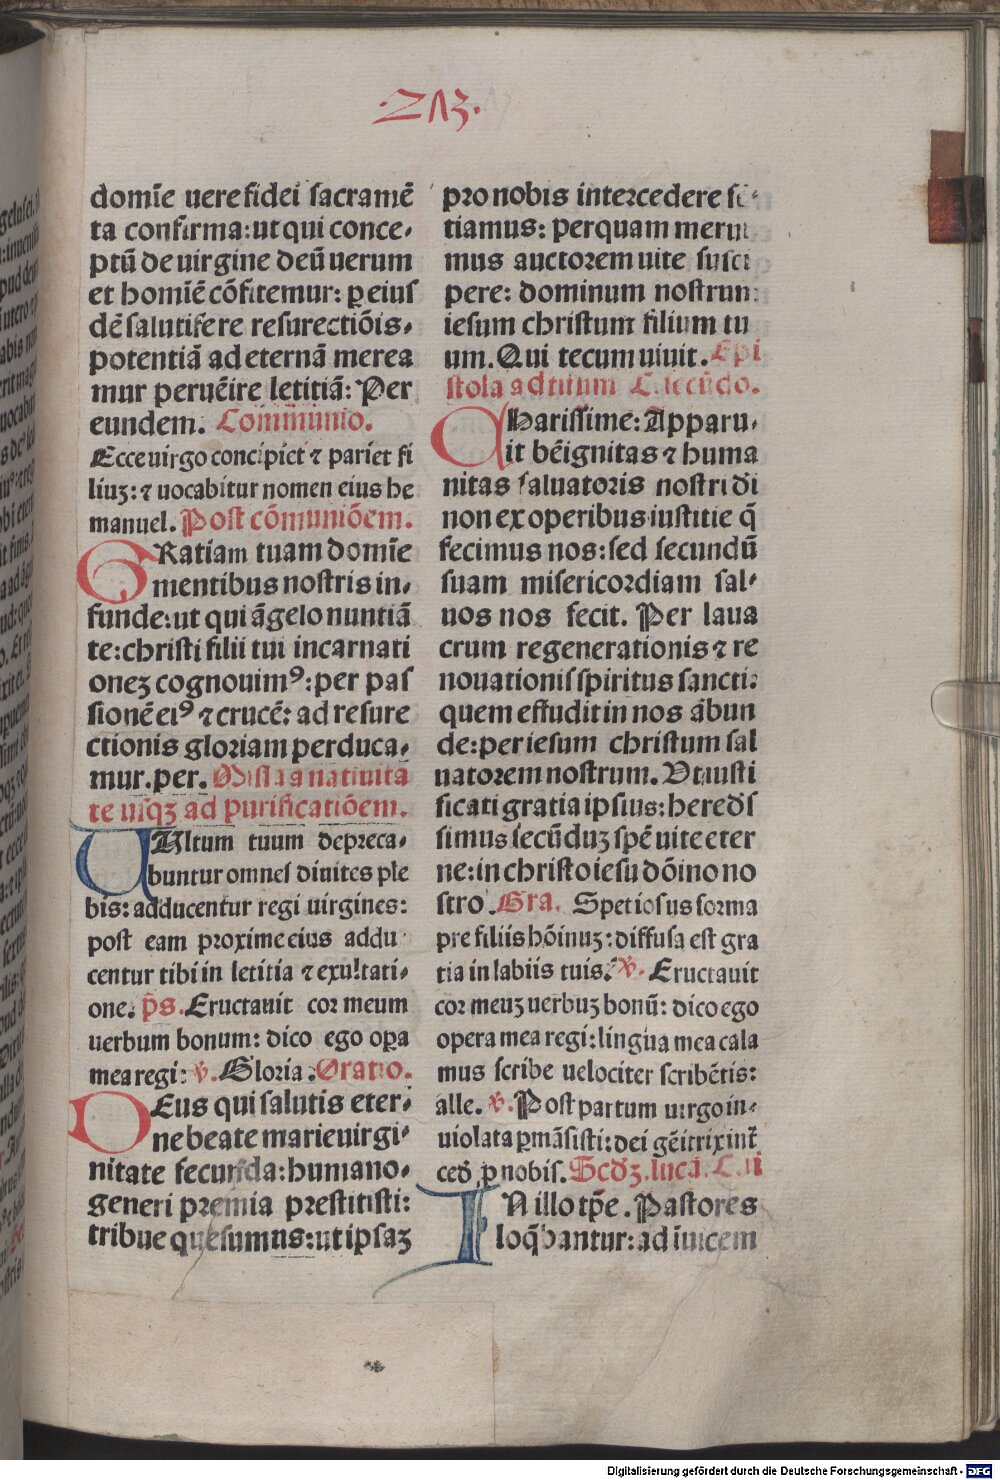 ·213·
domīe uere fidei sacramē
ta confirma: ut qui conce,
ptū de uirgine deū uerum
et homīē cōfitemur: ꝑ eius
dē salutifere resurectiōis,
potentiā ad eternā merea
mur peruēire letitiā: Per
eundem. Communio.
Ecce uirgo concipiet ⁊ pariet fi
liuʒ: ⁊ uocabitur nomen eius he
manuel. Post cōmuniōem.
GRatiam tuam domīe
mentibus nostris in,
funde: ut qui āgelo nuntiā
te: christi filii tui incarnati
oneʒ cognouimꝰ: per pas
sionē eiꝰ ⁊ crucē: ad resure
ctionis gloriam perduca,
mur. per. Missa a natiuita
te usqʒ ad purificatiōem.
VUltum tuum depreca,
buntur omnes diuites ple
bis: adducentur regi uirgines:
post eam proxime eius addu
centur tibi in letitia ⁊ exultati,
one. p̄s. Eructauit cor meum
uerbum bonum: dico ego oꝑa
mea regi: v. Gloria. Oratio.
DEus qui salutis eter,
ne beate marie uirgi,
nitate fecunda: humano,
generi premia prestitisti:
tribue quesumus: ut ipsaʒ
pro nobis intercedere sē
tiamus: per quam merui
mus auctorem uite susci
pere: dominum nostrum
iesum christum filium tu
um. Qui tecum uiuit. Epi
stola ad titum C. secūdo.
CHarissime: Apparu,
it bēignitas ⁊ huma
nitas saluatoris nostri di
non ex operibus iustitie q̄
fecimus nos: sed secundū
suam misericordiam sal,
uos nos fecit. Per laua
crum regenerationis ⁊ re
nouationis spiritus sancti:
quem effudit in nos abun
de: per iesum christum sal
uatorem nostrum. Vt iusti
ficati gratia ipsius: heredes
simus secūduʒ spē uite eter
ne: in christo iesu dōino no
stro. Gra. Spetiosus forma
pre filiis hōinuʒ: diffusa est gra
tia in labiis tuis. v. Eructauit
cor meuʒ uerbuʒ bonū: dico ego
opera mea regi: lingua mea cala
mus scribe uelociter scribētis:
alle. v. Post partum uirgo in,
uiolata ꝑmāsisti: dei gēitrix int̄
cedē ꝓ nobis. Scdʒ. lucā. C. ii
IN illo tp̄e. Pastores
loq̄bantur: ad iuicem
Digitalisierung gefördert durch die Deutsche Forschungsgemeinschaft - DFG